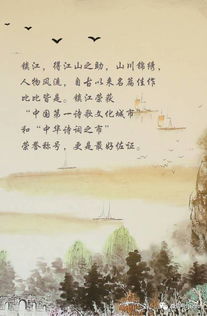 镇江，得江山之助，山川锦绣，
人物风流，自古以来名篇佳作
比比皆是。镇江荣获
“中国第一诗歌文化城市”
和“中华诗词之市”
荣誉称号，更是最好佐证。